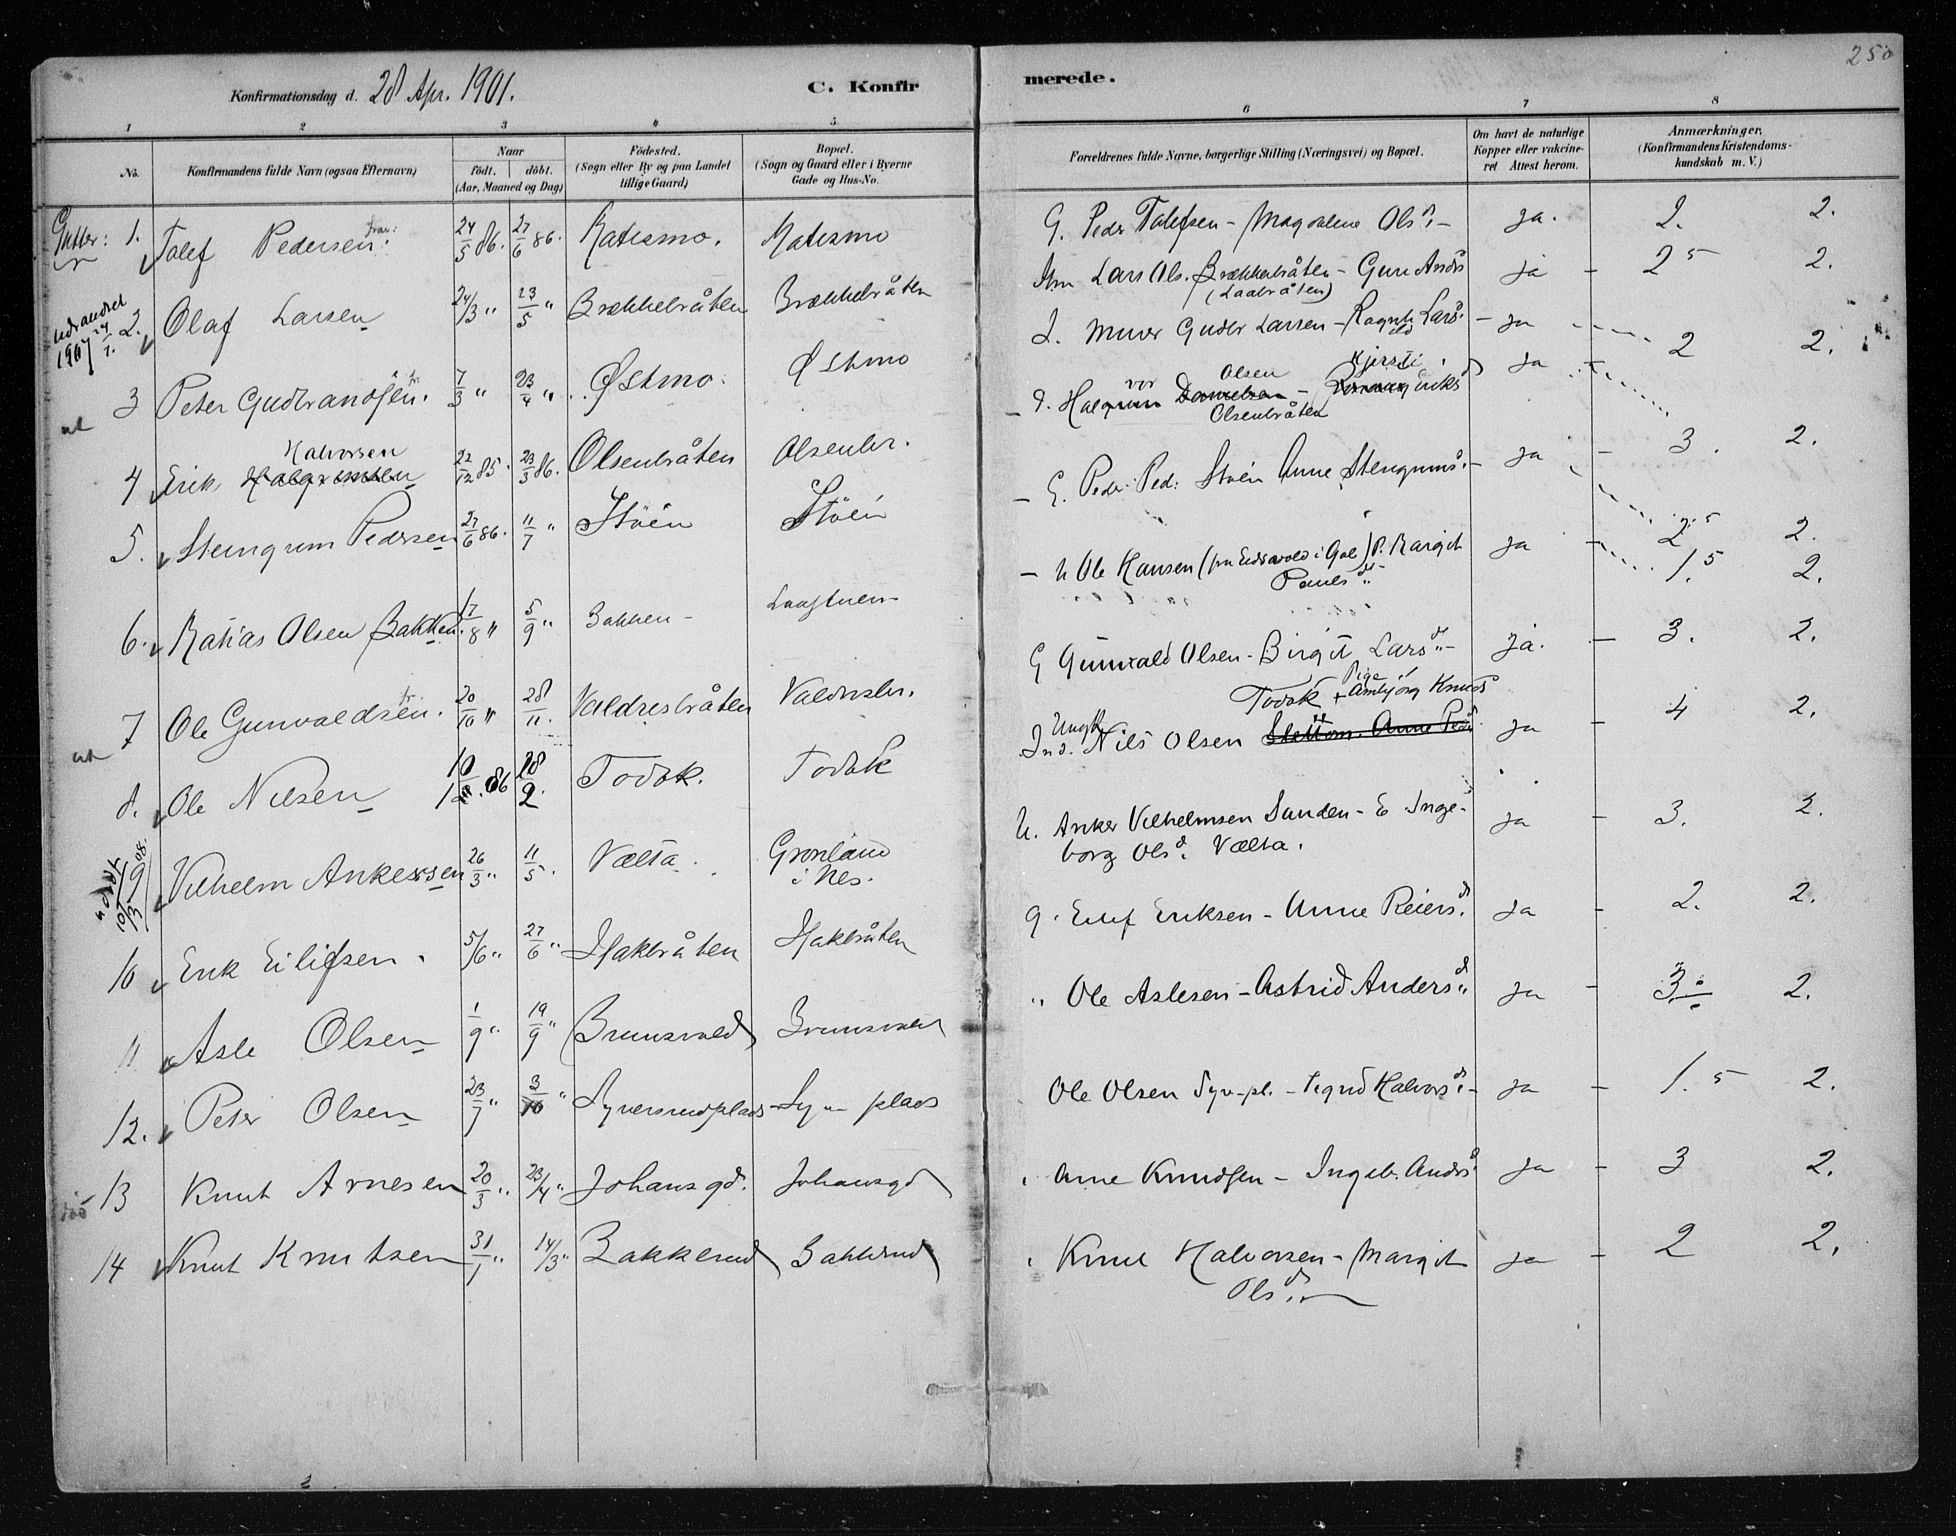 250
Konfirmationsdag d. 28 Apr. 1901. C. Konfirmerede.
1 2 3 4 5 6 7 8
No. Konfirmandens fulde Navn (ogsaa Efternavn) Naar Född. döbt. (Aar, Maaned og Dag) Födested. (Sogn eller By og paa Landet tillige Gaard) Bopæl. (Sogn og Gaard eller i Byerne Gade og Hus-No. Forældrenes fulde Navne, borgerlige Stilling (Næringsvei) og Bopæl. Om havt de naturlige Kopper eller vakcineret Attest herom. Anmærkninger. (Konfirmandens Kristendomskundskab m. V.)
Gutter: 1. Tolef Pedersen 24/5 86. 27/6 86. Matismo. Matismo G. Peder Tolefsen - Magdalene Olsd. - ja. 2. 2.
udvandret 1907 2. Olaf Larsen 24/3 " 23/5 " Brækkebråten Brækkebråten Hm Lars Ols. Brækkebråten - Guri Andrs ja - 2 5 2.
(Laabråten)
3 Peter Gudbrandsen. 7/3 " 23/4 " Østmo. Østmo I. Murer Gudbr Larsen - Ragnh Lars. - ja 2 2.
4 Erik Halvorsen 22/12 85. 23/3 86. Olsenbråten Olsenbr. Halvor Olsen - Kjersti Eriks ja 3. 2.
Olsenbråten
5. Stengrim Pedersen 27/6 86. 11/7 " Stöen Stöen - G. Peder Ped: Stöen Anne Stengrims. - ja - 2.5 2.
6. Matias Olsen Bakken. 17/8 " 5/9 " Bakken - - U Ole Hansen (fra Eidsvold i Gol) P. Margit ja - 1.5 2.
Pauls d.
7 Ole Gunvaldsen. 20/10 " 28/11. Valdresbråten Valdresbr. G Gunvald Olsen - Birgit Larsd. - ja. - 3. 2.
8. Ole Nilsen 86 28/2. Todok. Todok Nils Olsen Todok Pige Ambjörg Knuds ja - 4 2.
Vilhelm Ankersen 26/3 " 11/5. Vælta. Grönland i Nes. U. Anker Vilhelmsen Sanden - E. Ingeborg Olsd. Vælta. ja - 3. 2.
10 Erik Eilifsen. 5/6 " 27/6 " Hakbråten Hakbråten G. Eilif Eriksen - Anne Reiers d. ja - 2. 2.
11 Asle Olsen 1/9 " 19/9 " Brunsvold Brunsvold " Ole Aslesen - Astrid Anders d. ja - 3 2.
12. Peter Olsen 23/7 " 3/10 " Syversrudplads - Syv- plads Ole Olsen Syv-pl. - Sigrid Halvors d. - ja - 1.5 2.
13 Knut Arnesen 20/3 " 23/4 " Johansgd. Johansgd Arne Knudsen - Ingeb. Andrs ja - 3 2.
14 Knut Knutsen 31/1 " 14/3 " Bakkerud Bakkerud Knut Halvorsen - Margit ja - 2 2.
Olsd.